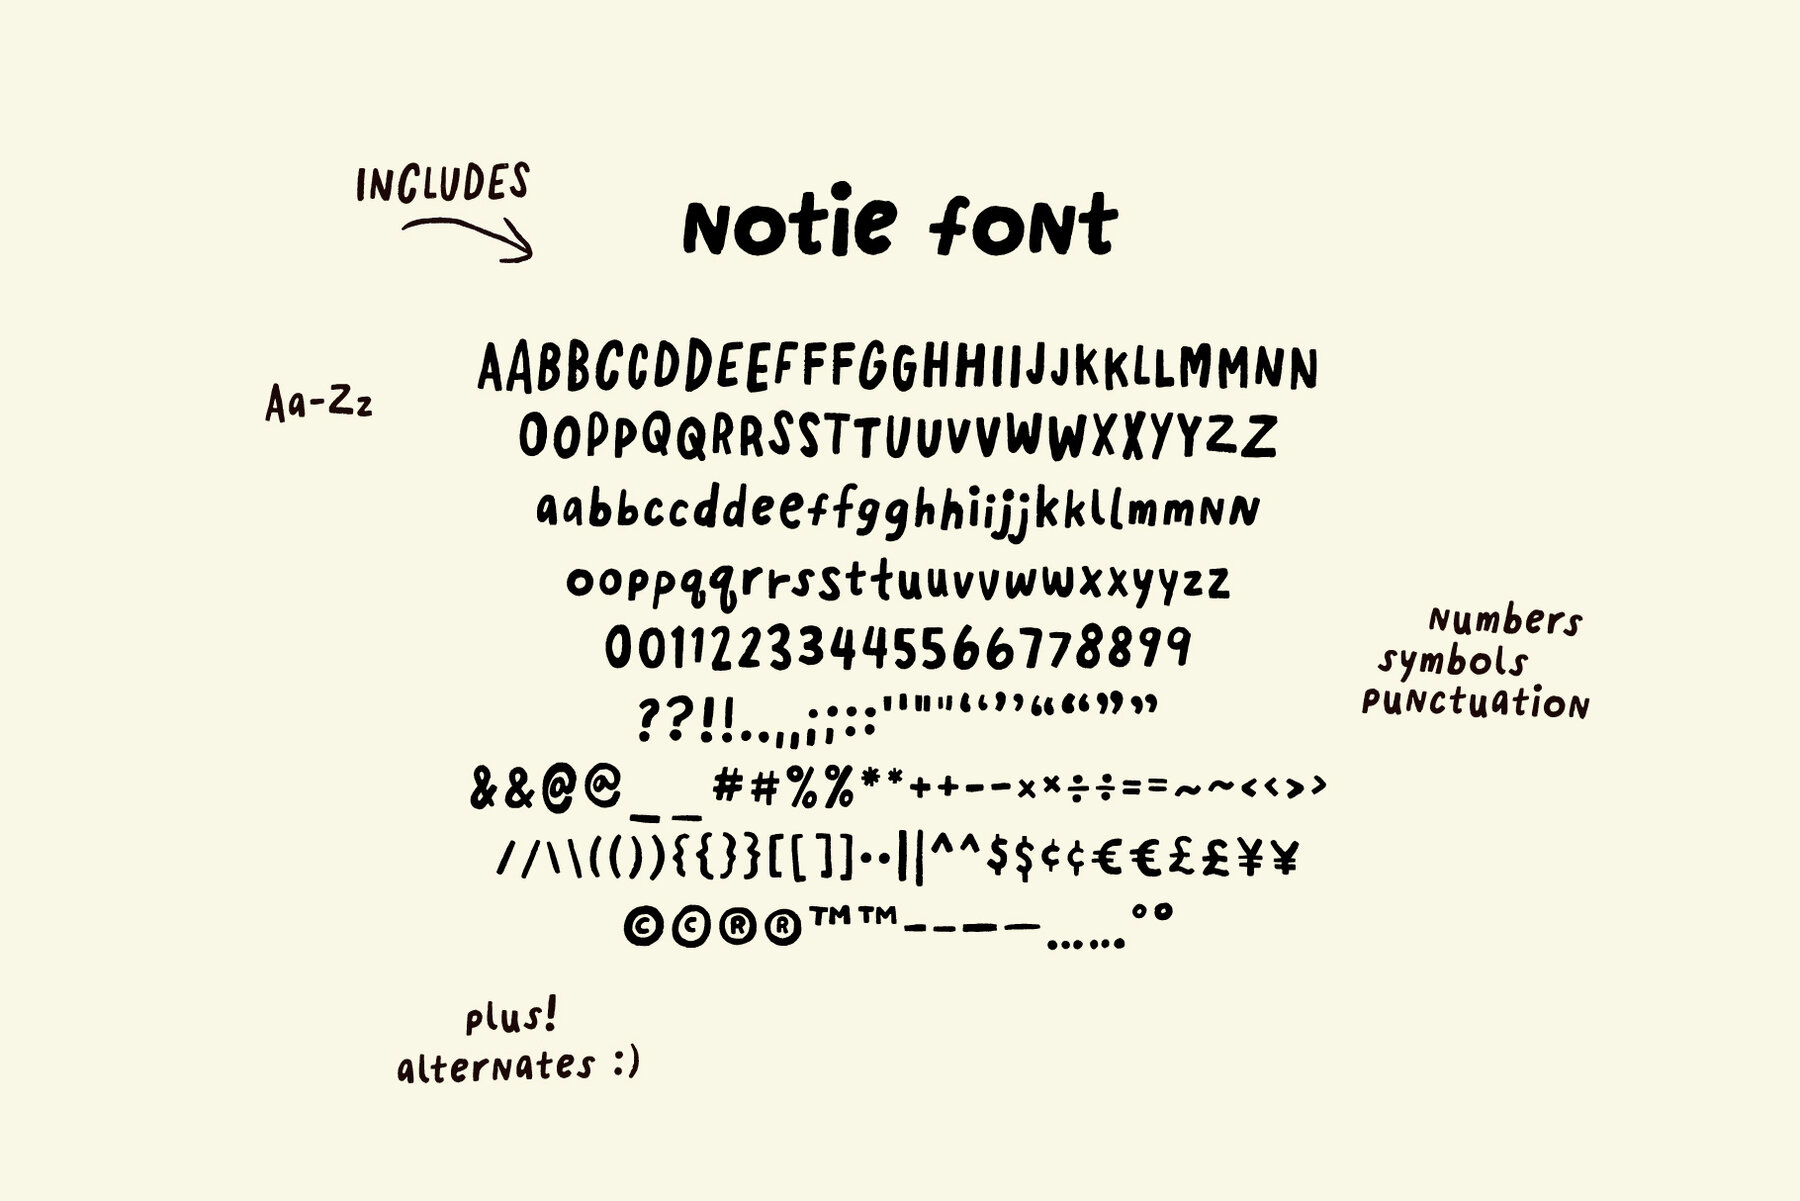 INCLUDES
Notie font
Aa-Zz
AABBCCDDEEFFFFGGHHIIJJKKLLMMNN
OOPPQQRRSSTTUUVVWWXXYYZZ
aabbccddeeffgghhiijjkkllmmNN
ooppqqrrssttuuvvwwxxyyzz
00112233445566778899
Numbers
symbols
puNctuatioN
??!!..,,,,;;::''""‘‘’’““””
&&@@__##%%**++--××÷÷==~~<<>>
//\\(()){{}}[[]]••||^^$$¢¢€€££¥¥
©©®®™™––——……°°
plus!
alterNates :)